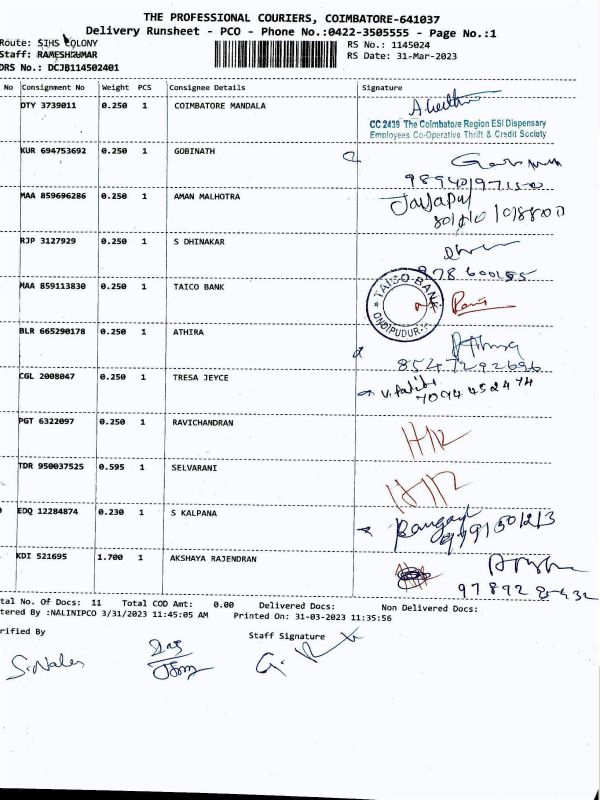 THE PROFESSIONAL COURIERS, COIMBATORE-641037
Delivery Runsheet - PCO - Phone No.:0422-3505555 - Page No.:1
Route: SIHS COLONY RS No.: 1145024
Staff: RAMESHKUMAR RS Date: 31-Mar-2023
DRS No.: DCJB114502401
No Consignment No Weight PCS Consignee Details Signature
DTY 3739011 0.250 1 COIMBATORE MANDALA
CC 2439 The Coimbatore Region ESI Dispensary
Employees Co-Operative Thrift & Credit Society
KUR 694753692 0.250 1 GOBINATH
MAA 859696286 0.250 1 AMAN MALHOTRA
RJP 3127929 0.250 1 S DHINAKAR
MAA 859113830 0.250 1 TAICO BANK
TAICO-BANK
BLR 665290178 0.250 1 ATHIRA
8547292696
CGL 2008047 0.250 1 TRESA JEYCE
7094452474
PGT 6322097 0.250 1 RAVICHANDRAN
TDR 950037525 0.595 1 SELVARANI
EDQ 12284874 0.230 1 S KALPANA
KDI 521695 1.700 1 AKSHAYA RAJENDRAN
tal No. Of Docs: 11 Total COD Amt: 0.00 Delivered Docs: Non Delivered Docs:
tered By :NALINIPCO 3/31/2023 11:45:05 AM Printed On: 31-03-2023 11:35:56
rified By Staff Signature